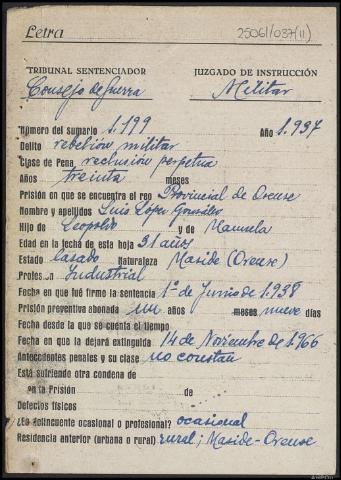 Letra 25061/037(11)
TRIBUNAL SENTENCIADOR JUZGADO DE INSTRUCCIÓN
Consejo de Guerra Militar
Número del sumario 1.199 Año 1.937
Delito rebelión militar
Clase de Pena reclusión perpetua
Años treinta meses
Prisión en que se encuentra el reo Provincial de Orense
Nombre y apellidos Luis López González
Hijo de Leopoldo y de Manuela
Edad en la fecha de esta hoja 31 años
Estado casado Naturaleza Maside (Orense)
Profes Industrial
Fecha en que fué firme la sentencia 1º de Junio de 1.938
Prisión preventiva abonada un años meses nueve días
Fecha desde la que se cuenta el tiempo
Fecha en que la dejará extinguida 14 de Noviembre de 1.966
Antecedentes penales y su clase no constan
Está sufriendo otra condena de
en la Prisión de
Defectos físicos
¿Es delincuente ocasional o profesional? ocasional
Residencia anterior (urbana o rural) rural; Maside-Orense